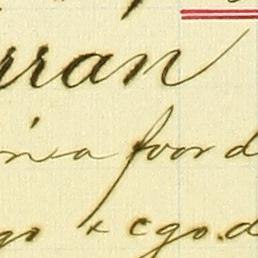 rran
nia foor d
go & Cgo.d